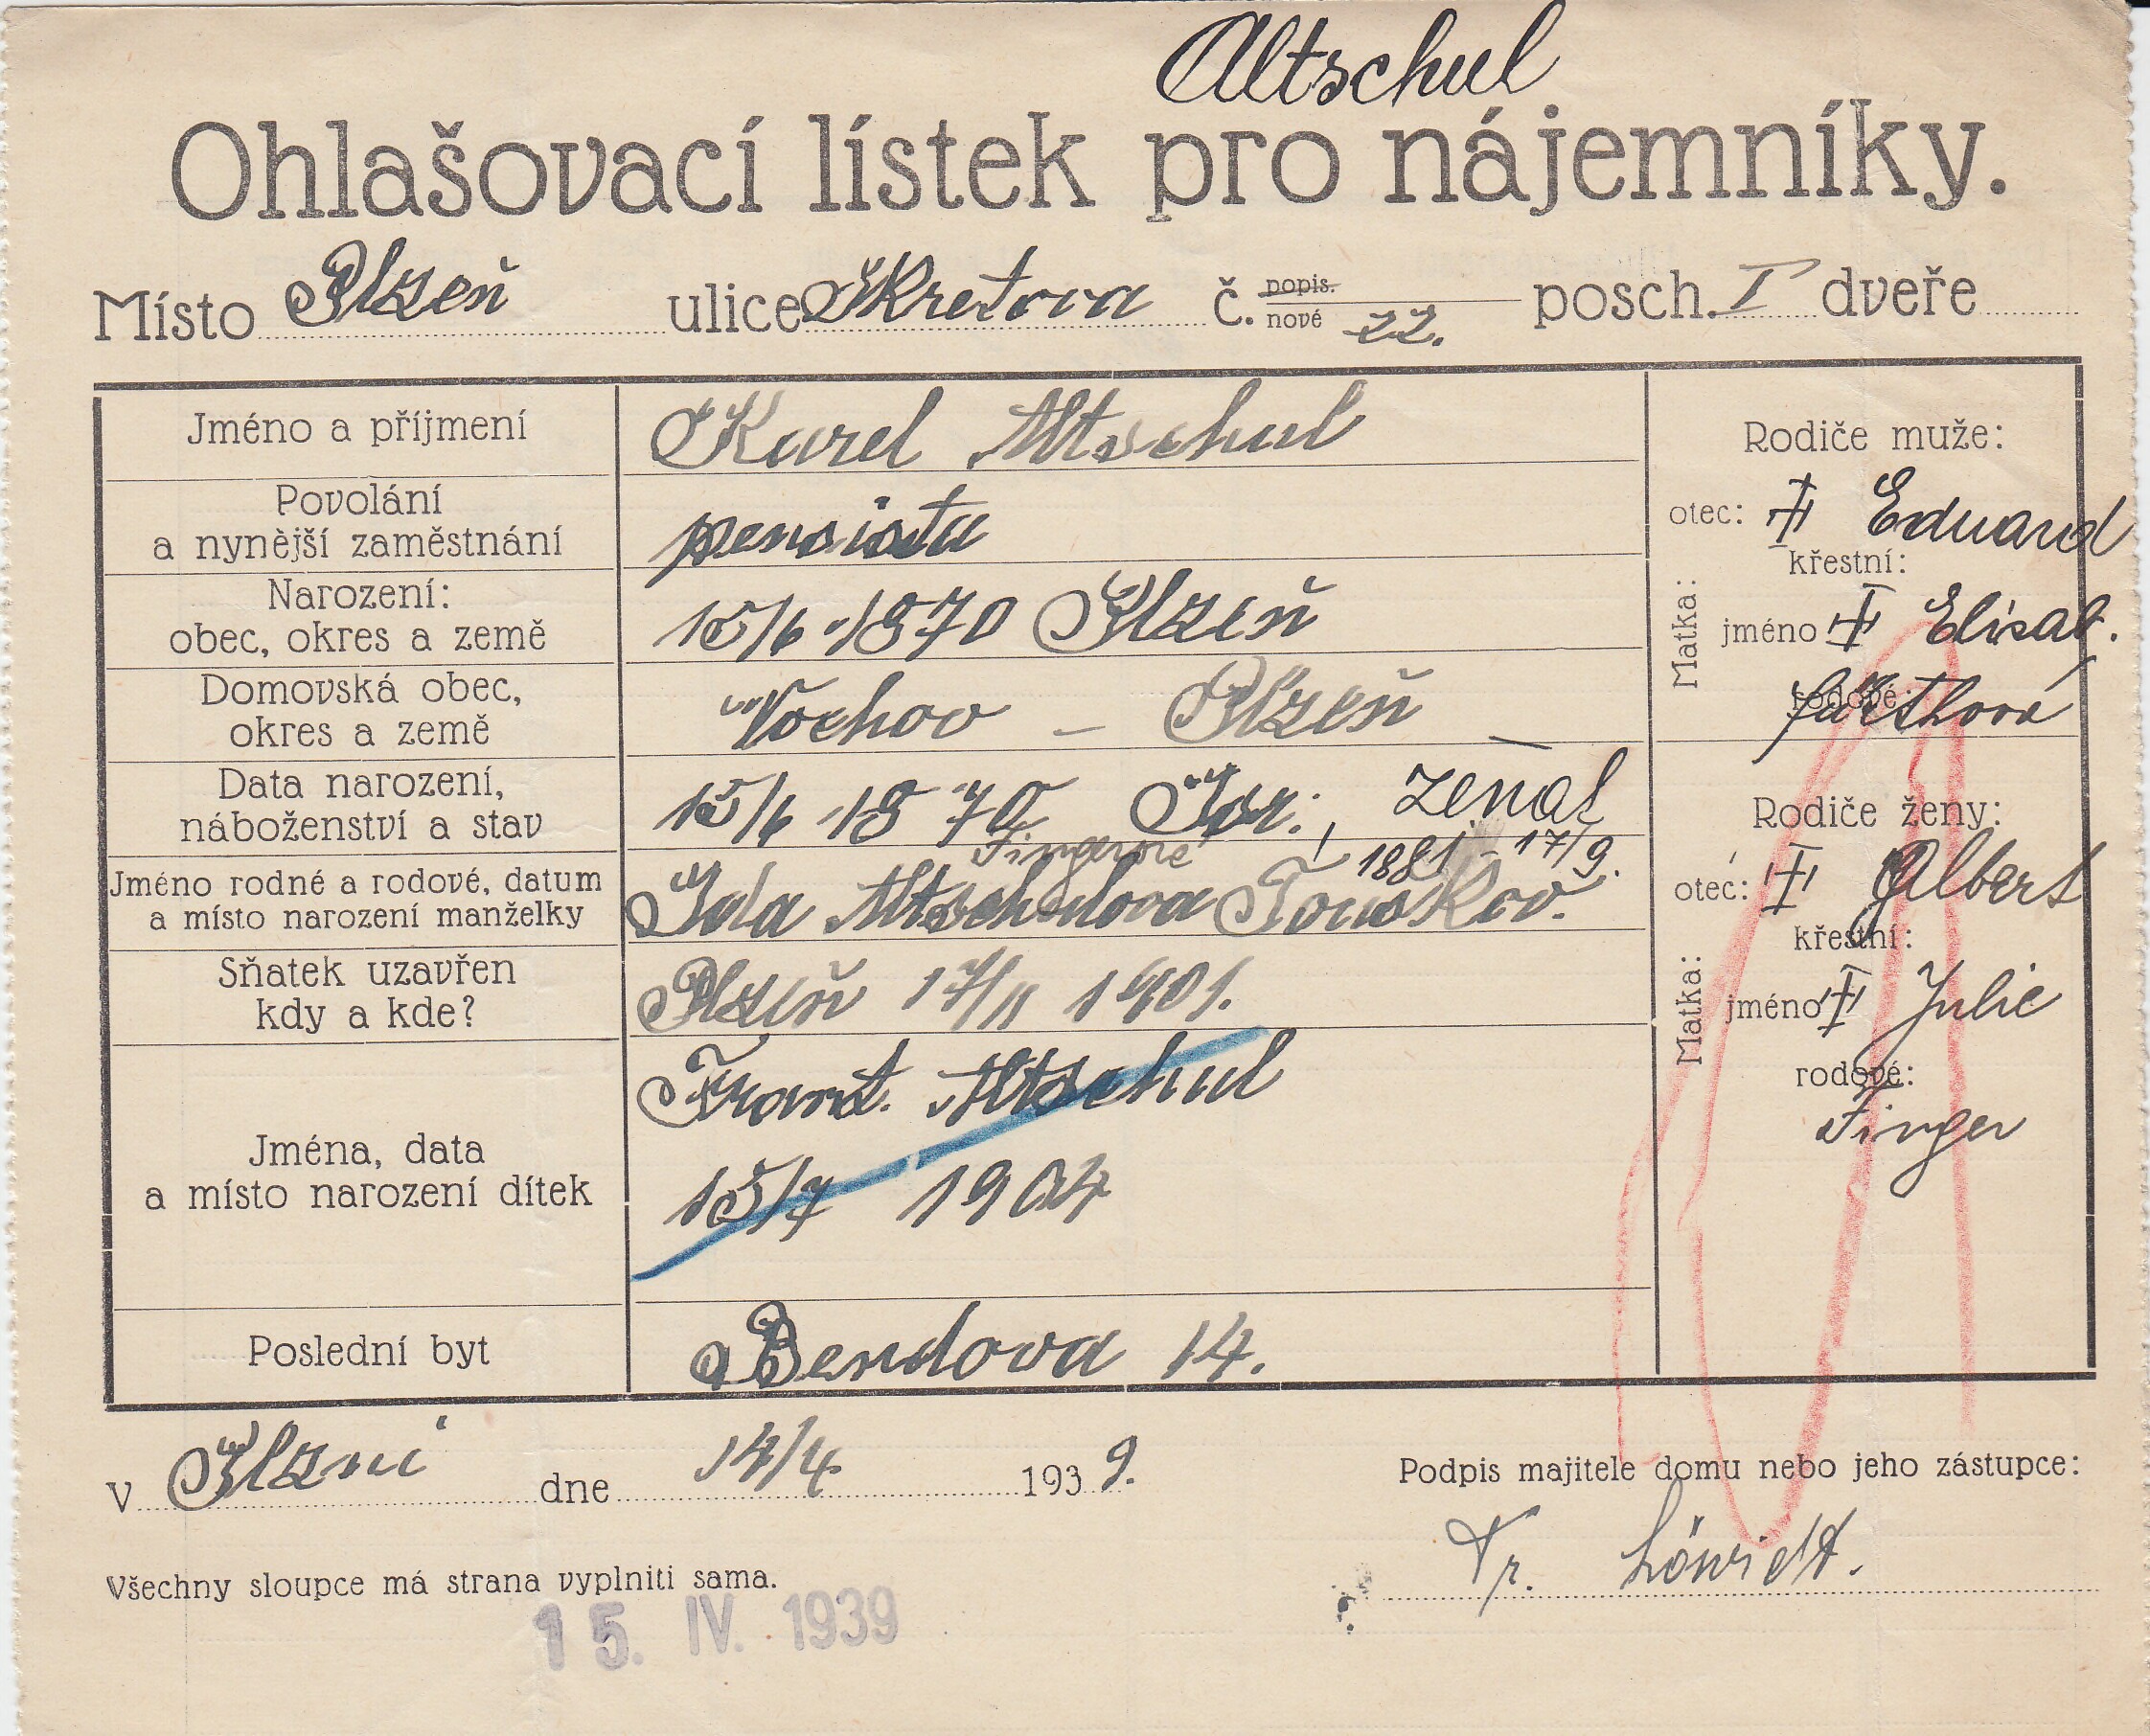 Altschul
Ohlašovací lístek pro nájemníky.
Místo Plzeň ulice Skretova č. popis. nové 22. posch. I dveře
Jméno a příjmení Karel Altschul
Povolání
a nynější zaměstnání pensista
Narození:
obec, okres a země 15/6 1870 Plzeň
Domovská obec,
okres a země Vochov – Plzeň
Data narození,
náboženství a stav 15/6 1870 Isr., ženat
Fingerové 1881 - 17/9.
Jméno rodné a rodové, datum
a místo narození manželky Ida Altschulova Touškov.
Sňatek uzavřen
kdy a kde? Plzeň 17/11 1901.
Jména, data
a místo narození dítek Frant. Altschul
15/7 1904
Poslední byt Bendova 14.
Rodiče muže:
otec: Eduard
Matka:
křestní:
jméno Elisab.
rodové:
Rodiče ženy:
otec: Albert
Matka:
křestní:
jméno Julie
rodové:
Finger
v Plzni dne 14/4 1939.
Podpis majitele domu nebo jeho zástupce:
Fr.
Všechny sloupce má strana vyplniti sama.
15. IV. 1939